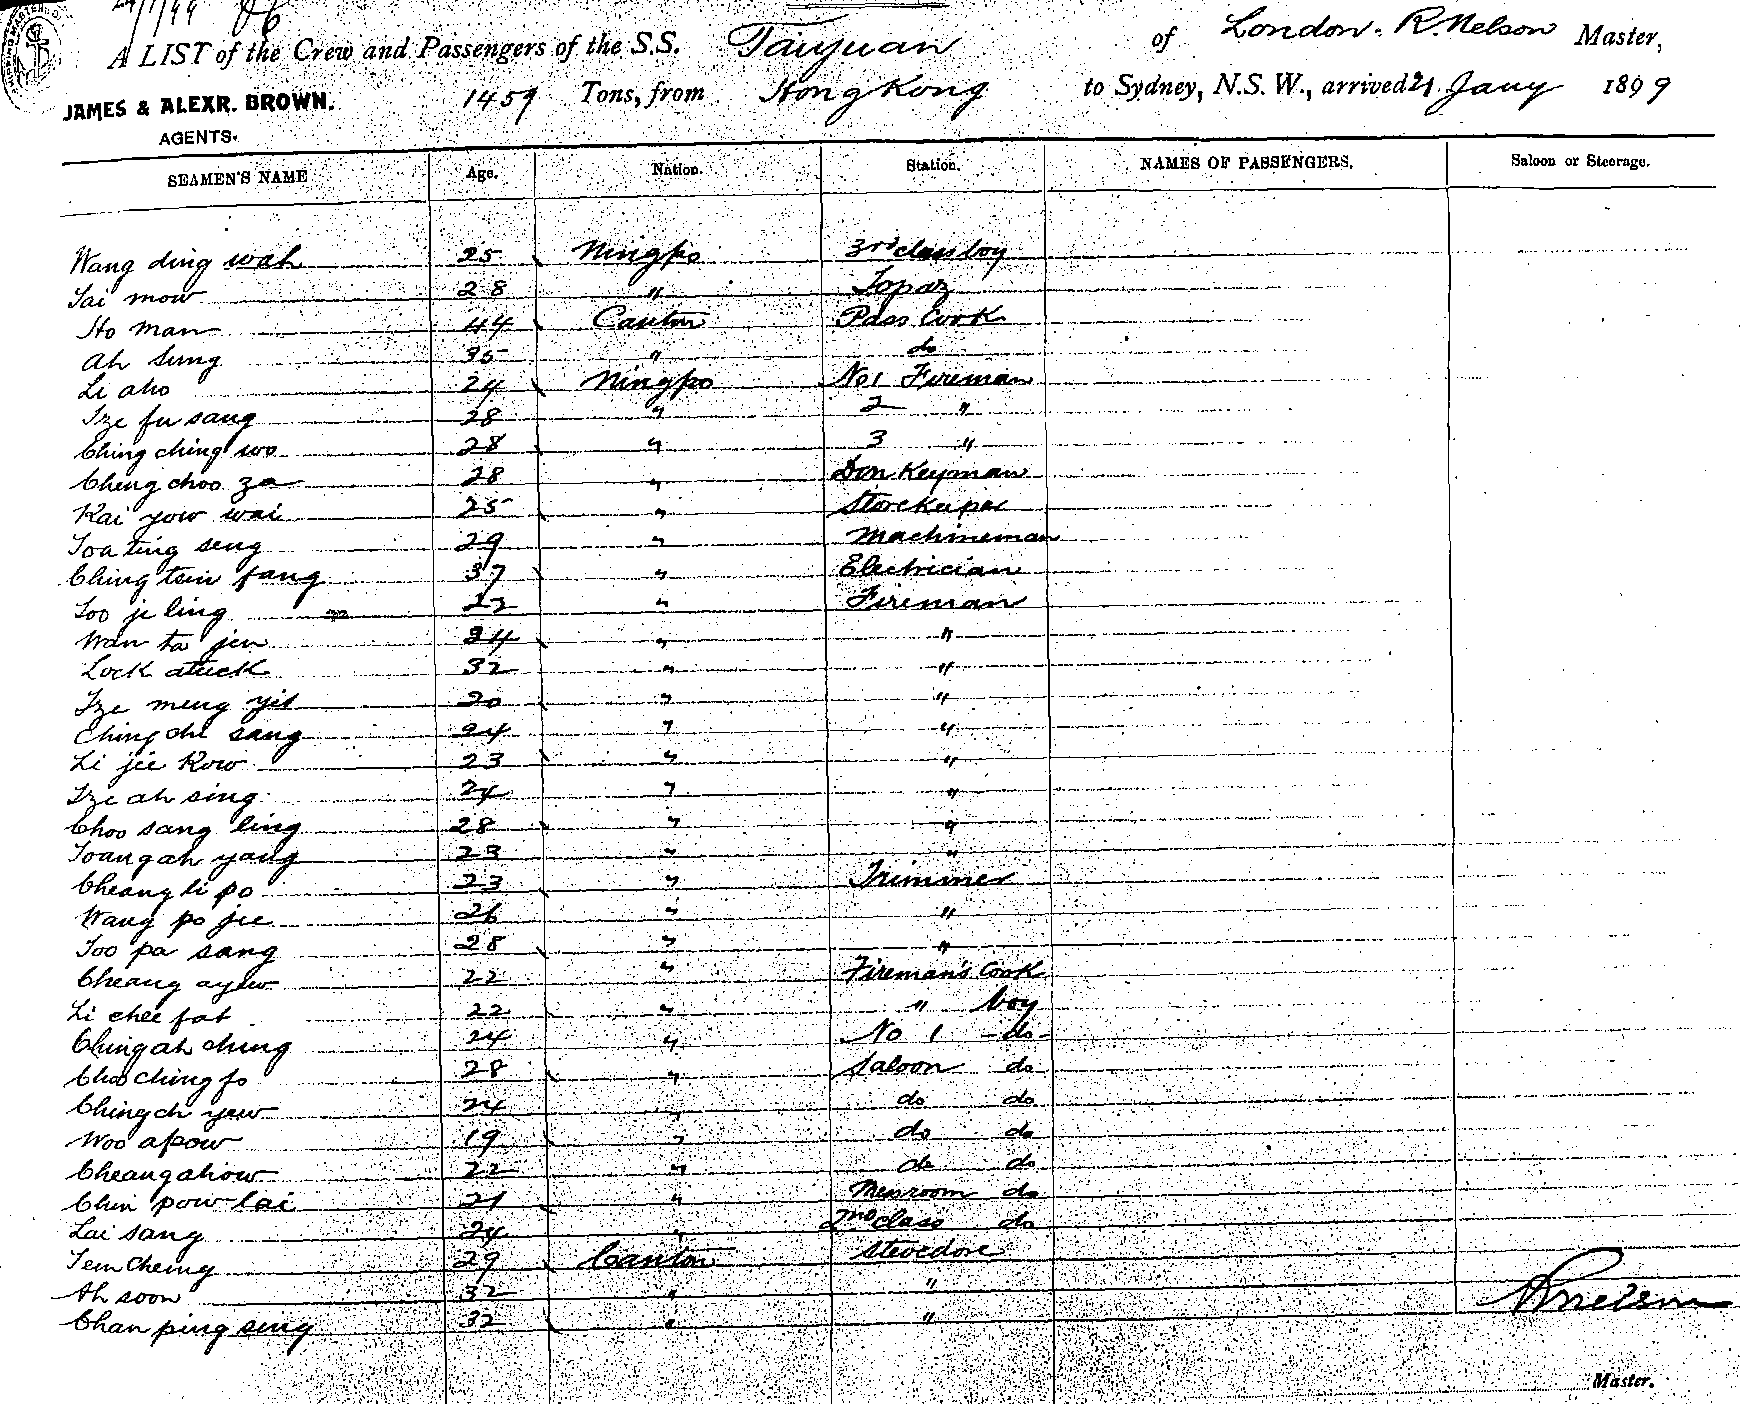 24/1/99
A LIST of the Crew and Passengers of the S.S. Taiyuan of London. R. Nelson Master,
1459 Tons, from Hong Kong to Sydney, N.S.W., arrived 21 Jany 1899
JAMES & ALEXR. BROWN.
AGENTS.
SEAMEN'S NAME Age. Nation. Station. NAMES OF PASSENGERS. Saloon or Steerage.
Wang ding wah 25 Ningpo 3rd class boy
Tai mow 28 " Topaz
Ho man 44 Canton Pass Cook
Ah Sung 35 " do
Li aho 24 Ningpo No 1 Fireman
Tze fu sang 28 " 2 "
Ching ching wo 28 " 3 "
Cheng choo za 28 " Donkeyman
Kai yow wai 25 " Storekeeper
Toa ting seng 29 " Machineman
Ching tein fang 37 " Electrician
Too je ling 22 " Fireman
Wan ta jen 34 " "
Lock atuck 32 " "
Tze meng yit 20 " "
Ching che sang 24 " "
Li jee Kow 23 " "
Tze ah sing 24 " "
Choo sang ling 28 " "
Toang ah yang 23 " "
Cheang li po 23 " Trimmer
Wang po jee 26 " "
Too pa sang 28 " "
Cheang ayew 22 " Fireman's Cook
Li chee fat 22 " " boy
Ching ah ching 24 " No 1 do
Choo ching fo 28 " Saloon do
Ching ch yew 24 " do do
Woo apow 19 " do do
Cheang ahow 22 " do do
Chin pow lai 21 " Messroom do
Lai sang 24 " 2nd class do
Tem Cheing 29 Canton Stevedore
Ah soon 32 " "
Chan ping sing 32 " "
R Nelson
Master.